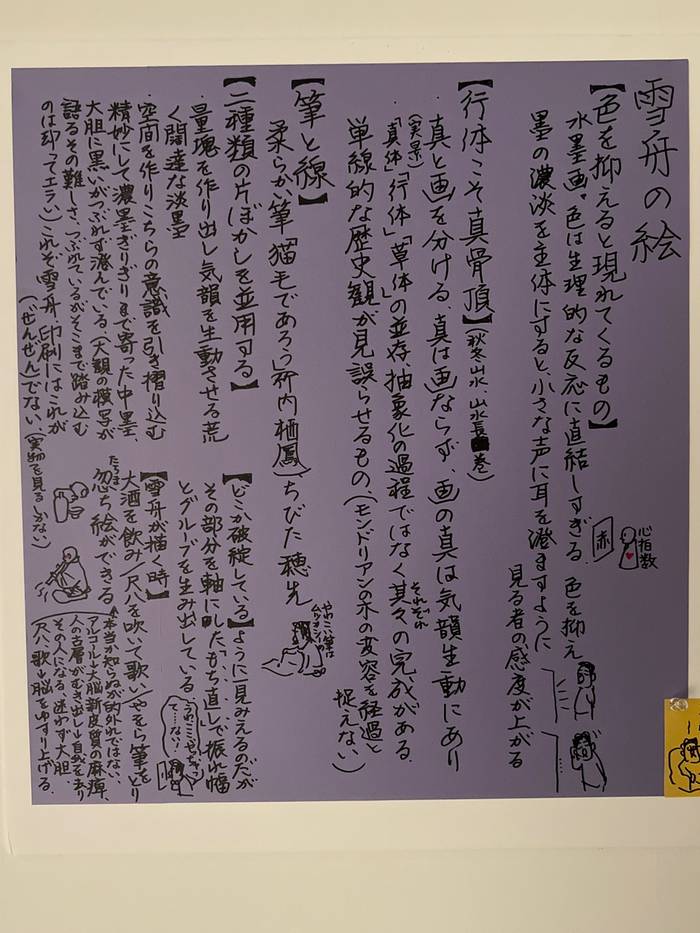 雪舟の絵
【色を抑えると現れてくるもの】
水墨画。色は生理的な反応に直結しすぎる。色を抑え
墨の濃淡を主体にすると、小さな声に耳を澄ますように
見る者の感度が上がる
赤
心拍数
【行体こそ真骨頂】(秋冬山水 山水長巻)
・真と画を分ける、真は画ならず、画の真は気韻生動にあり
(実景)
・「真体」「行体」「草体」の並存、抽象化の過程ではなく其々の完成がある。
それぞれ
単線的な歴史観が見誤らせるもの、(モンドリアンの木の変容を経過と
捉えない)
【筆と線】
柔らか、筆「猫毛であろう」(竹内栖鳳)、ちびた穂先
やわこい筆は
【二種類の片ぼかしを並用する】
・量塊を作り出し気韻を生動させる荒
く闊達な淡墨
・空間を作りこちらの意識を引き摺り込む
精妙にして濃墨ぎりぎりまで寄った中墨、
大胆に黒いがつぶれず澄んでいる、(大観の模写が
語るその難しさ、つぶれているがそこまで踏み込む
のは却ってエラい)これぞ雪舟 印刷にはこれが
(ぜんぜんでない、(実物を見るしかない)
【どこか破綻している】ように一見みえるのだが
その部分を軸にした、「もち直し」で振れ幅
とグルーブを生み出している
【雪舟が描く時】
大酒を飲み/尺八を吹いて歌い/やをら筆をとり
たちまち
忽ち絵ができる
本当か知らぬが的外れではない、
アルコール→大脳新皮質の麻痺、
人の古層がむき出し→自我を去り
その人になる、迷わず大胆、
尺八、歌→脳をゆすり上げる